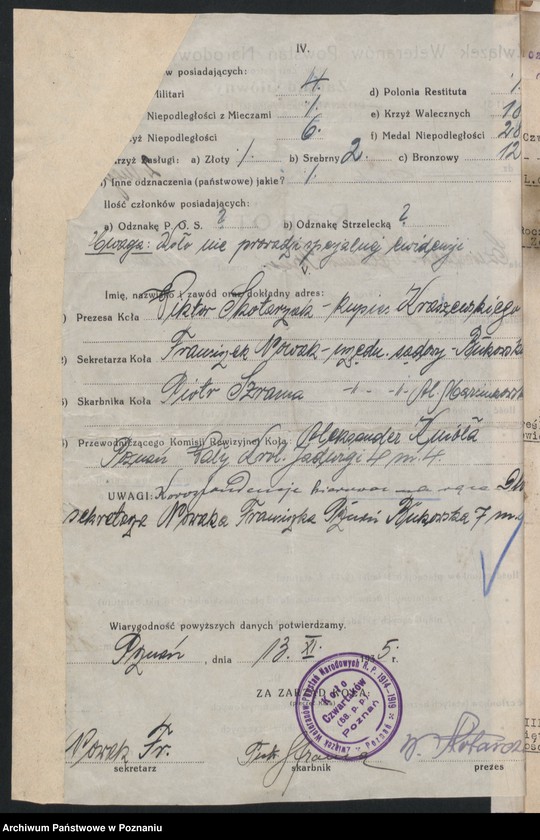 IV.
w posiadających:
Militari 4. d) Polonia Restituta 1.
Niepodległości z Mieczami 1. e) Krzyż Walecznych 10
Niepodległości 6. f) Medal Niepodległości 28
Krzyż Zasługi: a) Złoty 1. b) Srebrny 2. c) Bronzowy 12
) Inne odznaczenia (państwowe) jakie? 1.
Ilość członków posiadających:
a) Odznakę P. O. S. ? b) Odznakę Strzelecką ?
Uwaga: Koło nie prowadzi specjalnej ewidencji
V.
Imię, nazwisko i zawód oraz dokładny adres:
) Prezesa Koła Wiktor Skotarczak - kupiec Kraszewskiego
2) Sekretarza Koła Franciszek Nowak - urzędn. sądowy - Bukowska
Skarbnika Koła Piotr Szrama
Przewodniczącego Komisji Rewizyjnej Koła: Aleksander
Poznań Wały Król. Jadwigi 4 m. 4.
UWAGI: Korespondencje kierować na ręce
sekretarza Nowaka Franciszka Poznań Bukowska 7 m.
Wiarygodność powyższych danych potwierdzamy.
Poznań, dnia 13. XI. 1935. r.
ZA ZARZĄD KOŁA:
Związek Weteranów Powstań Narodowych R. P. 1914-1919
Koło
Czwartków
(58 p. p.)
Poznań
Nowak Fr. Piotr Szrama W. Skotarcz
sekretarz skarbnik prezes
Archiwum Państwowe w Poznaniu